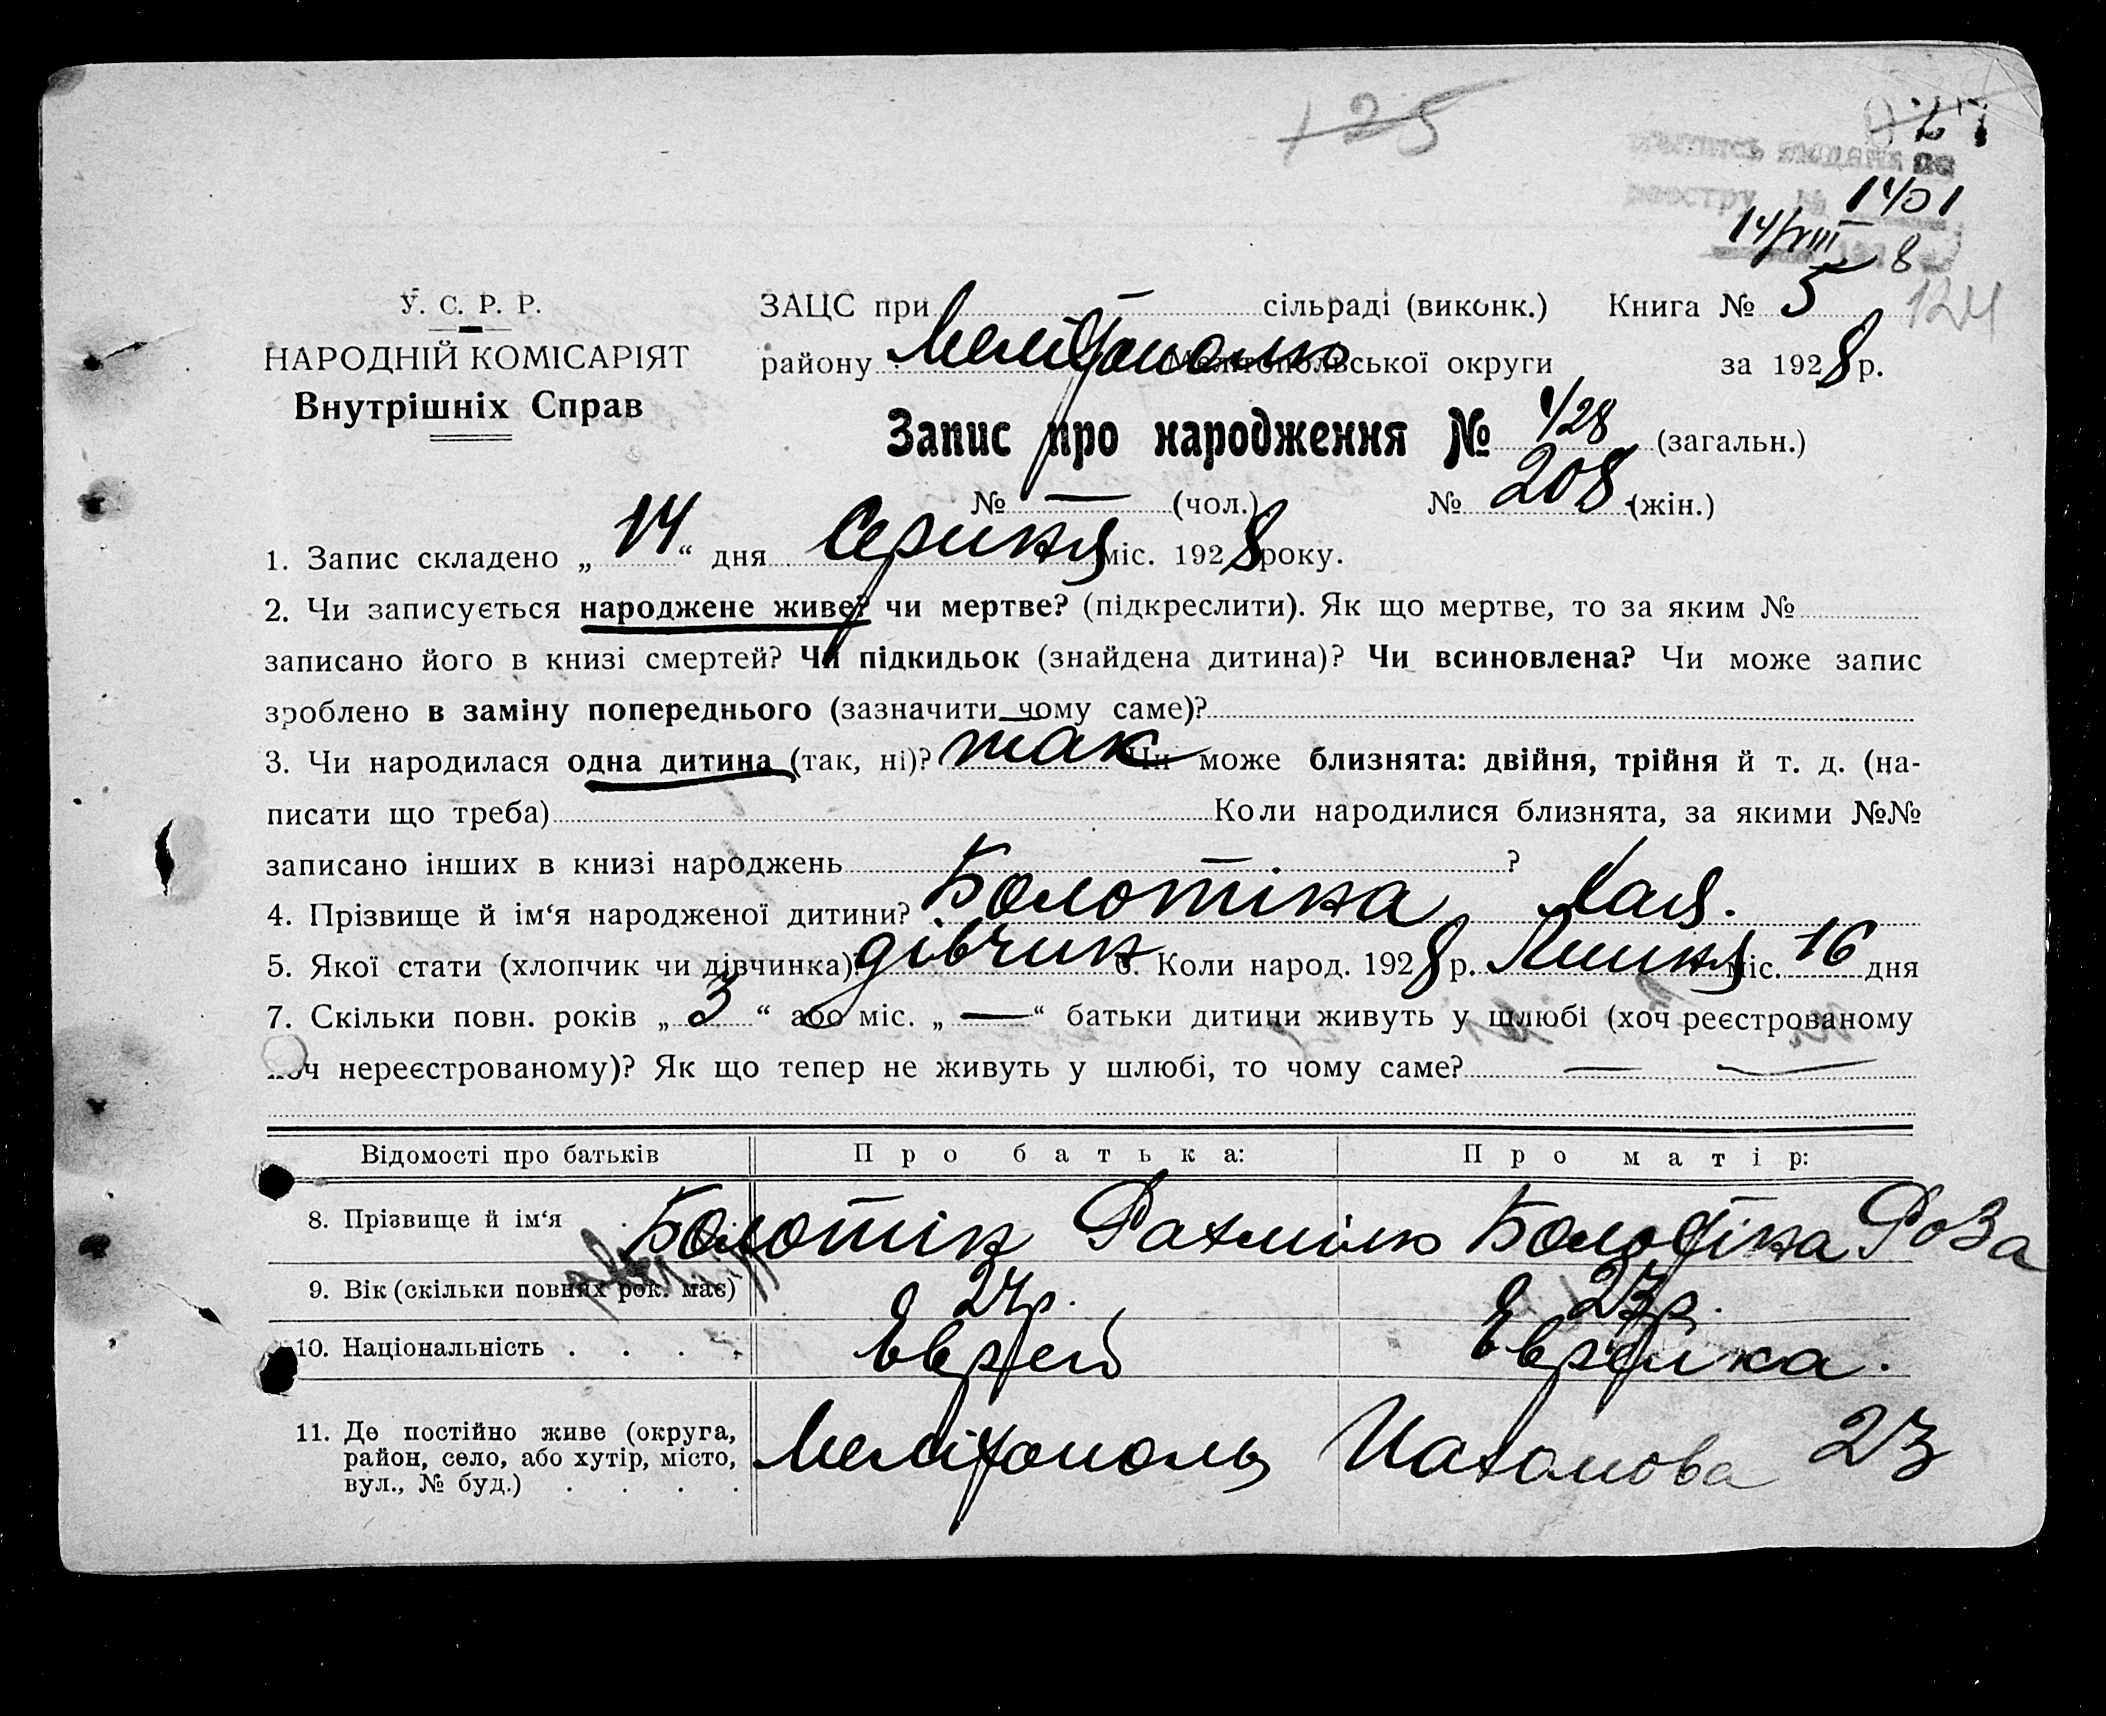 125
1401
14/VIII 8
У. С. Р. Р.
НАРОДНІЙ КОМІСАРІЯТ
Внутрішніх Справ
ЗАЦС при сільраді (виконк.) Книга № 5 124
району Мелітополю Мелітопольської округи за 1928 р.
Запис про народження № 428 (загальн.)
№ — (чол.) № 208 (жін.)
1. Запис складено „14“ дня Серпня міс. 1928 року.
2. Чи записується народжене живе? чи мертве? (підкреслити). Як що мертве, то за яким №
записано його в книзі смертей? Чи підкидьок (знайдена дитина)? Чи всиновлена? Чи може запис
зроблено в заміну попереднього (зазначити чому саме)?
3. Чи народилася одна дитина (так, ні)? так Чи може близнята: двійня, трійня й т. д. (на-
писати що треба) Коли народилися близнята, за якими №№
записано інших в книзі народжень ?
4. Прізвище й ім‘я народженої дитини? Болотіна Хая.
5. Якої стати (хлопчик чи дівчинка) дівчин 6. Коли народ. 1928 р. Липня міс. 16 дня
7. Скільки повн. років „3“ або міс. „—“ батьки дитини живуть у шлюбі (хоч реєстрованому
хоч нереєстрованому)? Як що тепер не живуть у шлюбі, то чому саме? — —
Відомості про батьків Про батька: Про матір:
8. Прізвище й ім‘я Болотін Рахміль Болотіна Роза
9. Вік (скільки повних рок. має) 27р. 23р.
10. Національність . . . . Еврей Еврейка.
11. Де постійно живе (округа,
район, село, або хутір, місто,
вул., № буд.) . . . . Мелітополь 23